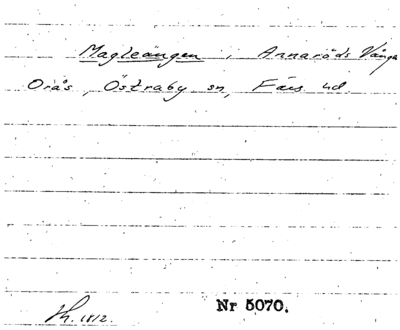 Magleängen, Annaröds Vånga
Orås, Östraby sn, Färs hd.
Sk. 1812.
Nr 5070.